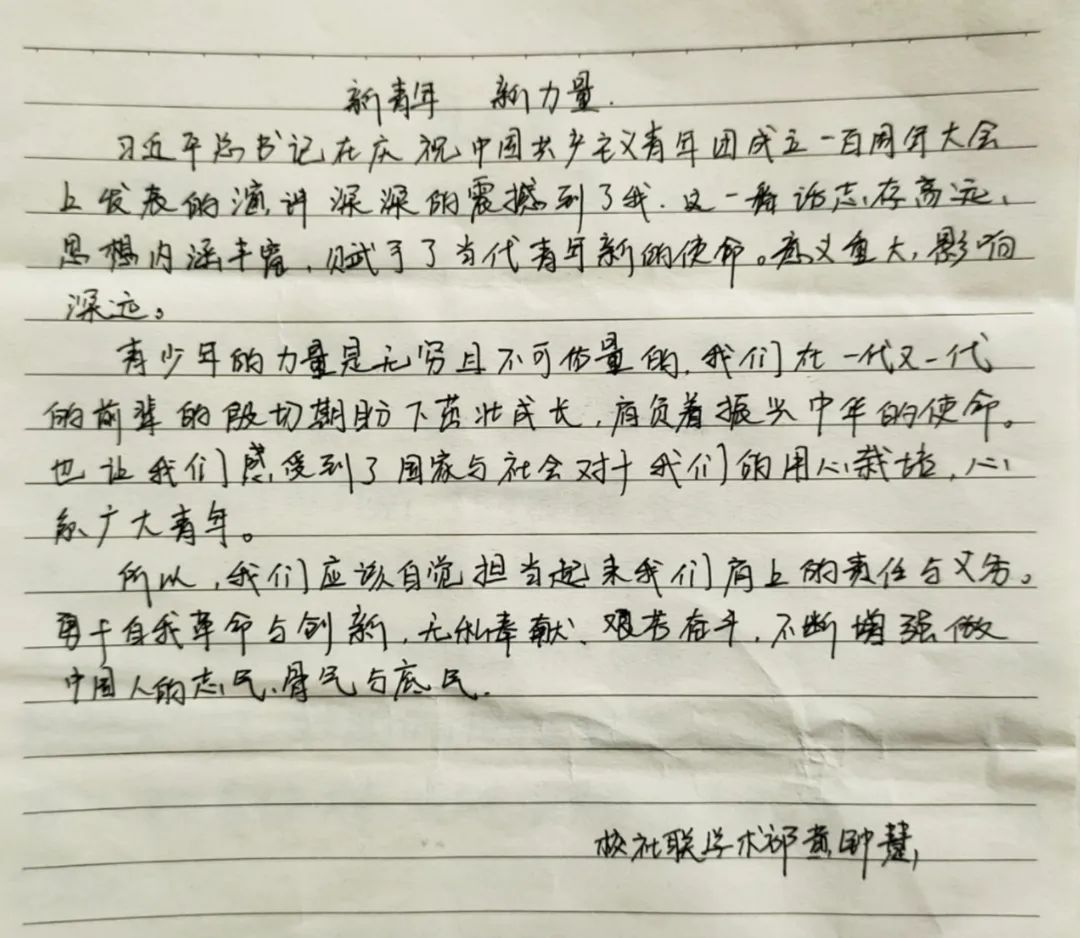 新青年 新力量.
习近平总书记在庆祝中国共产主义青年团成立一百周年大会
上发表的演讲深深的震撼到了我.这一番话志存高远、
思想内涵丰富,赋予了当代青年新的使命。意义重大,影响
深远。
青少年的力量是无穷且不可估量的,我们在一代又一代
的前辈的殷切期盼下茁壮成长,肩负着振兴中华的使命。
也让我们感受到了国家与社会对于我们的用心栽培,心
系广大青年。
所以,我们应该自觉担当起来我们肩上的责任与义务。
勇于自我革命与创新,无私奉献、艰苦奋斗,不断增强做
中国人的志气、骨气与底气.
校社联学术部黄